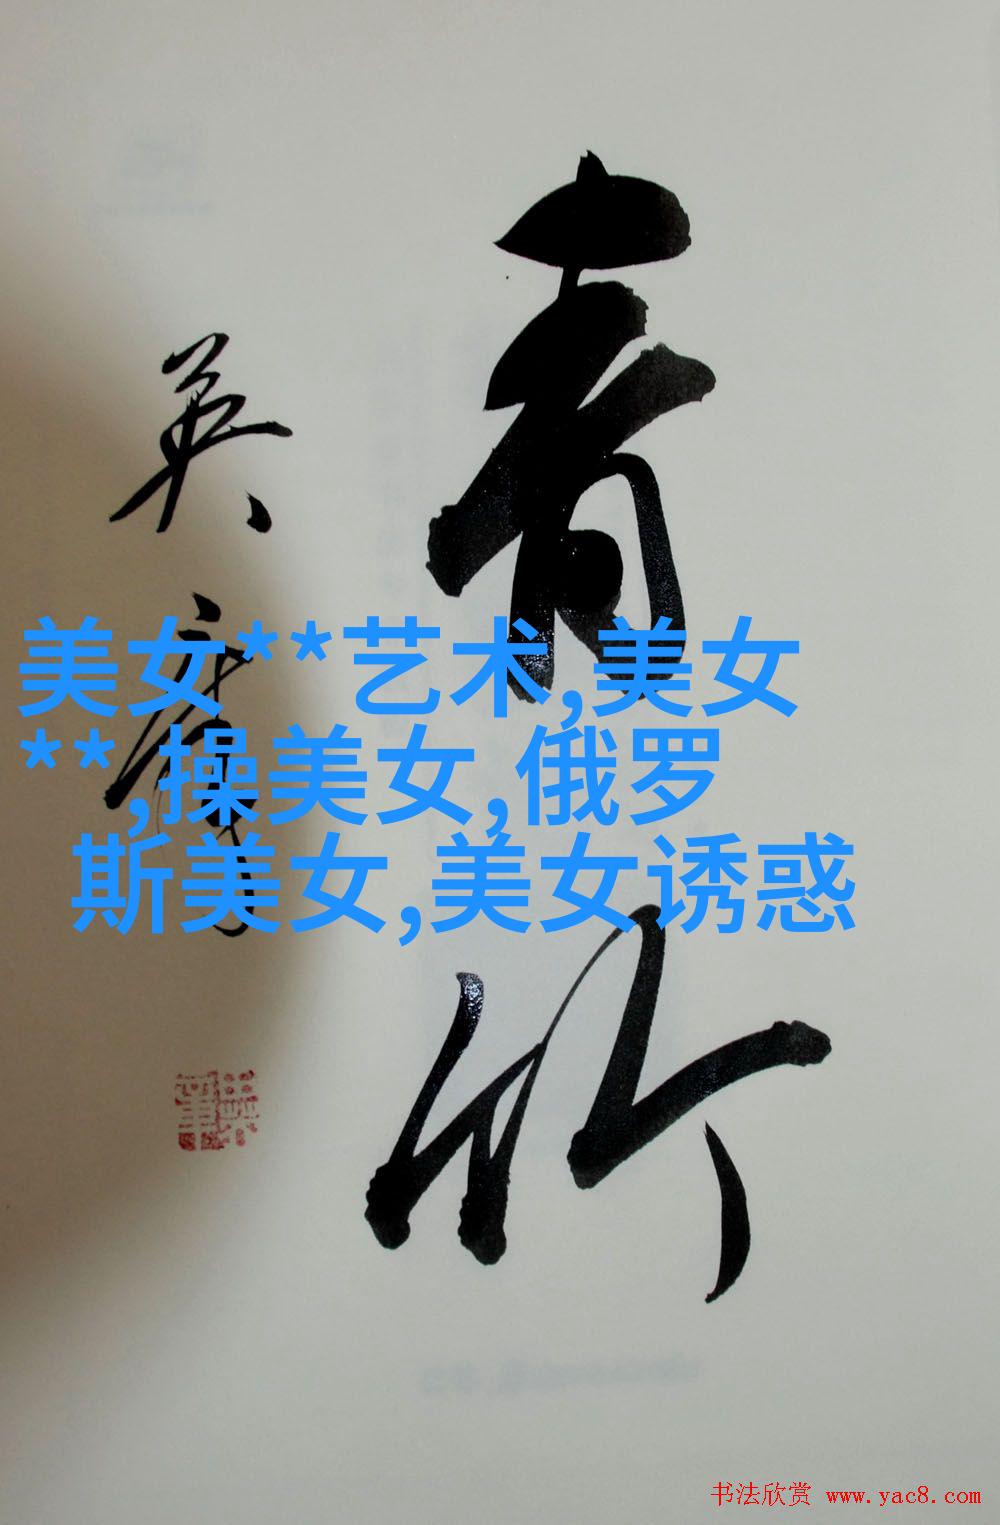 青竹
英
美女**艺术,美女
**,操美女,俄罗
斯美女,美女诱惑
书法欣赏 www.yac8.com